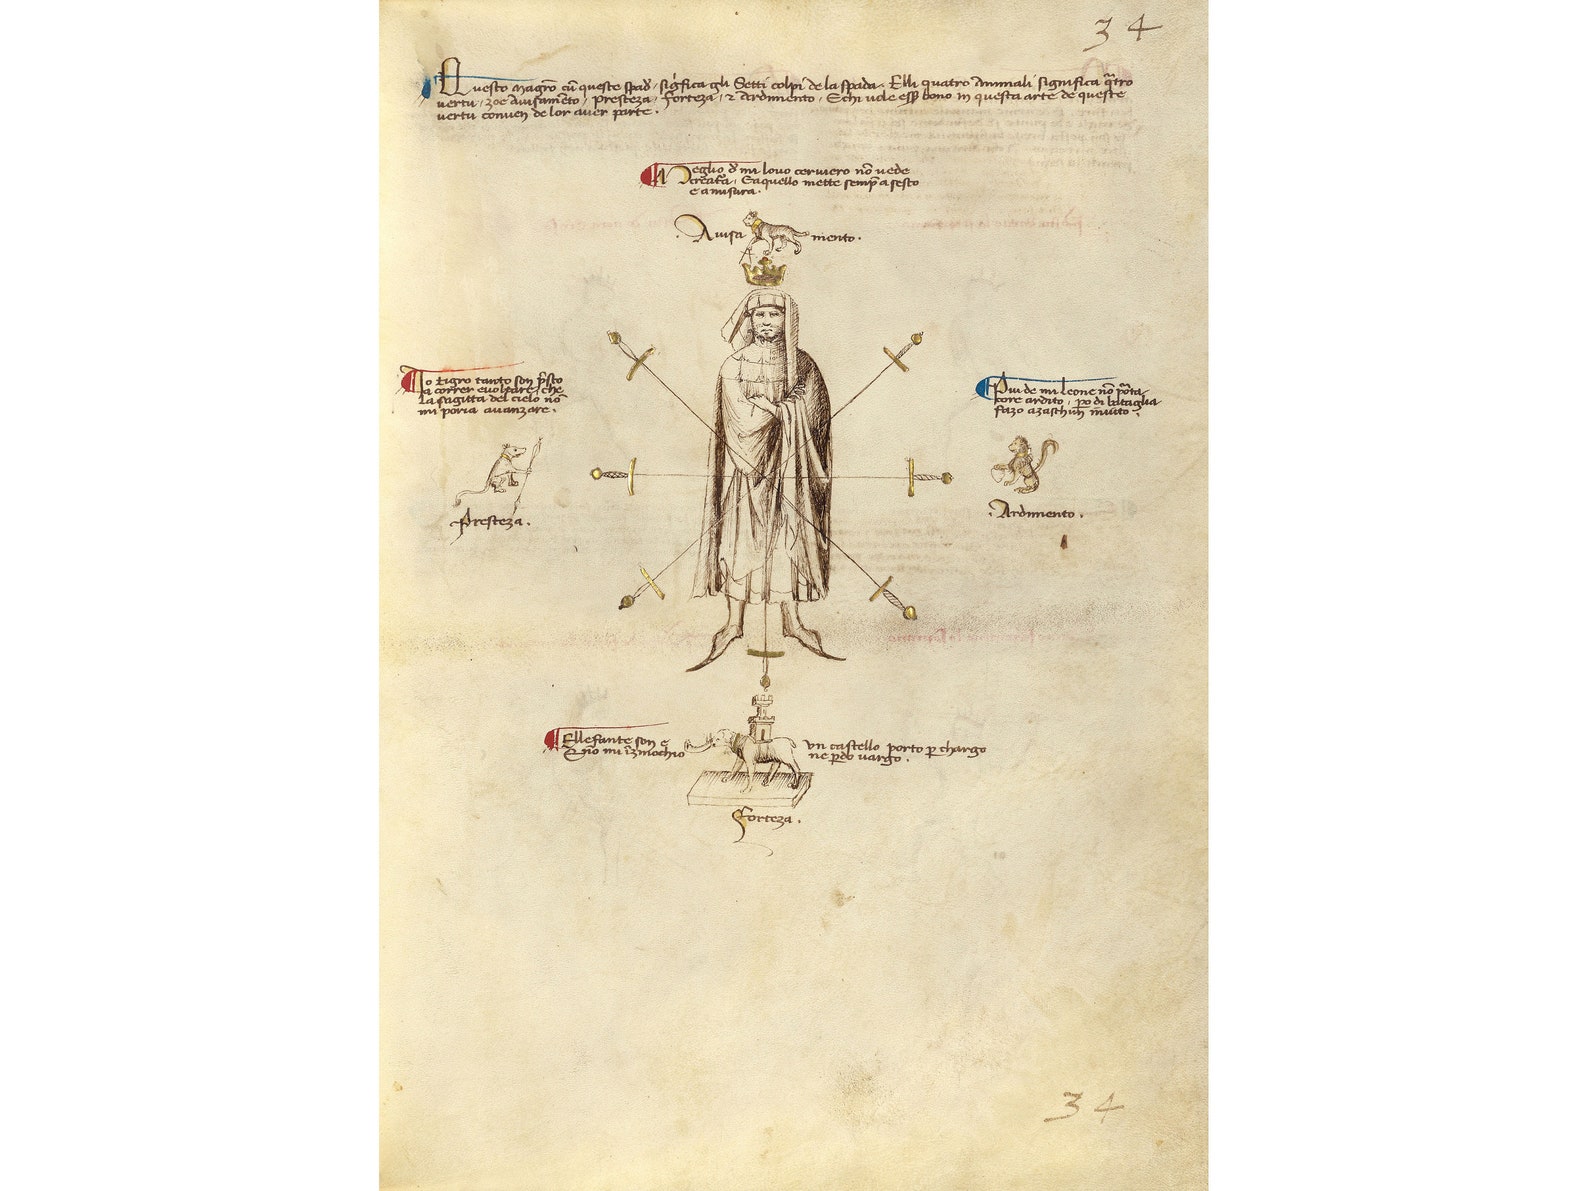 34
Questo Magrō cū queste spad̄ · sig̃fica gli Setti colpi de la spada · Elli quatro Animali significa q̄tro
vertù · zoè Avisamēto · Presteza · Forteza · & Ardimento · E chi vole ess̄ bono in questa arte de queste
vertù conven de lor aver parte ·
Meglio d̄ mi lovo cervero nō vede
creat̃a · E aquello mette semp̄ a sesto
e a misura ·
· Avisa mento ·
Io tigro tanto son p̄sto
a correr e voltare · che
la sagitta del cielo nō
mi poria avanzare ·
Più de mi leone nō porta
core ardito · po di bataglia
fazo a zaschun invito ·
Presteza ·
· Ardimento ·
Ellefante son e un castello porto p chargo
E nō mi īzinochio ne pdo vargo ·
Forteza ·
34